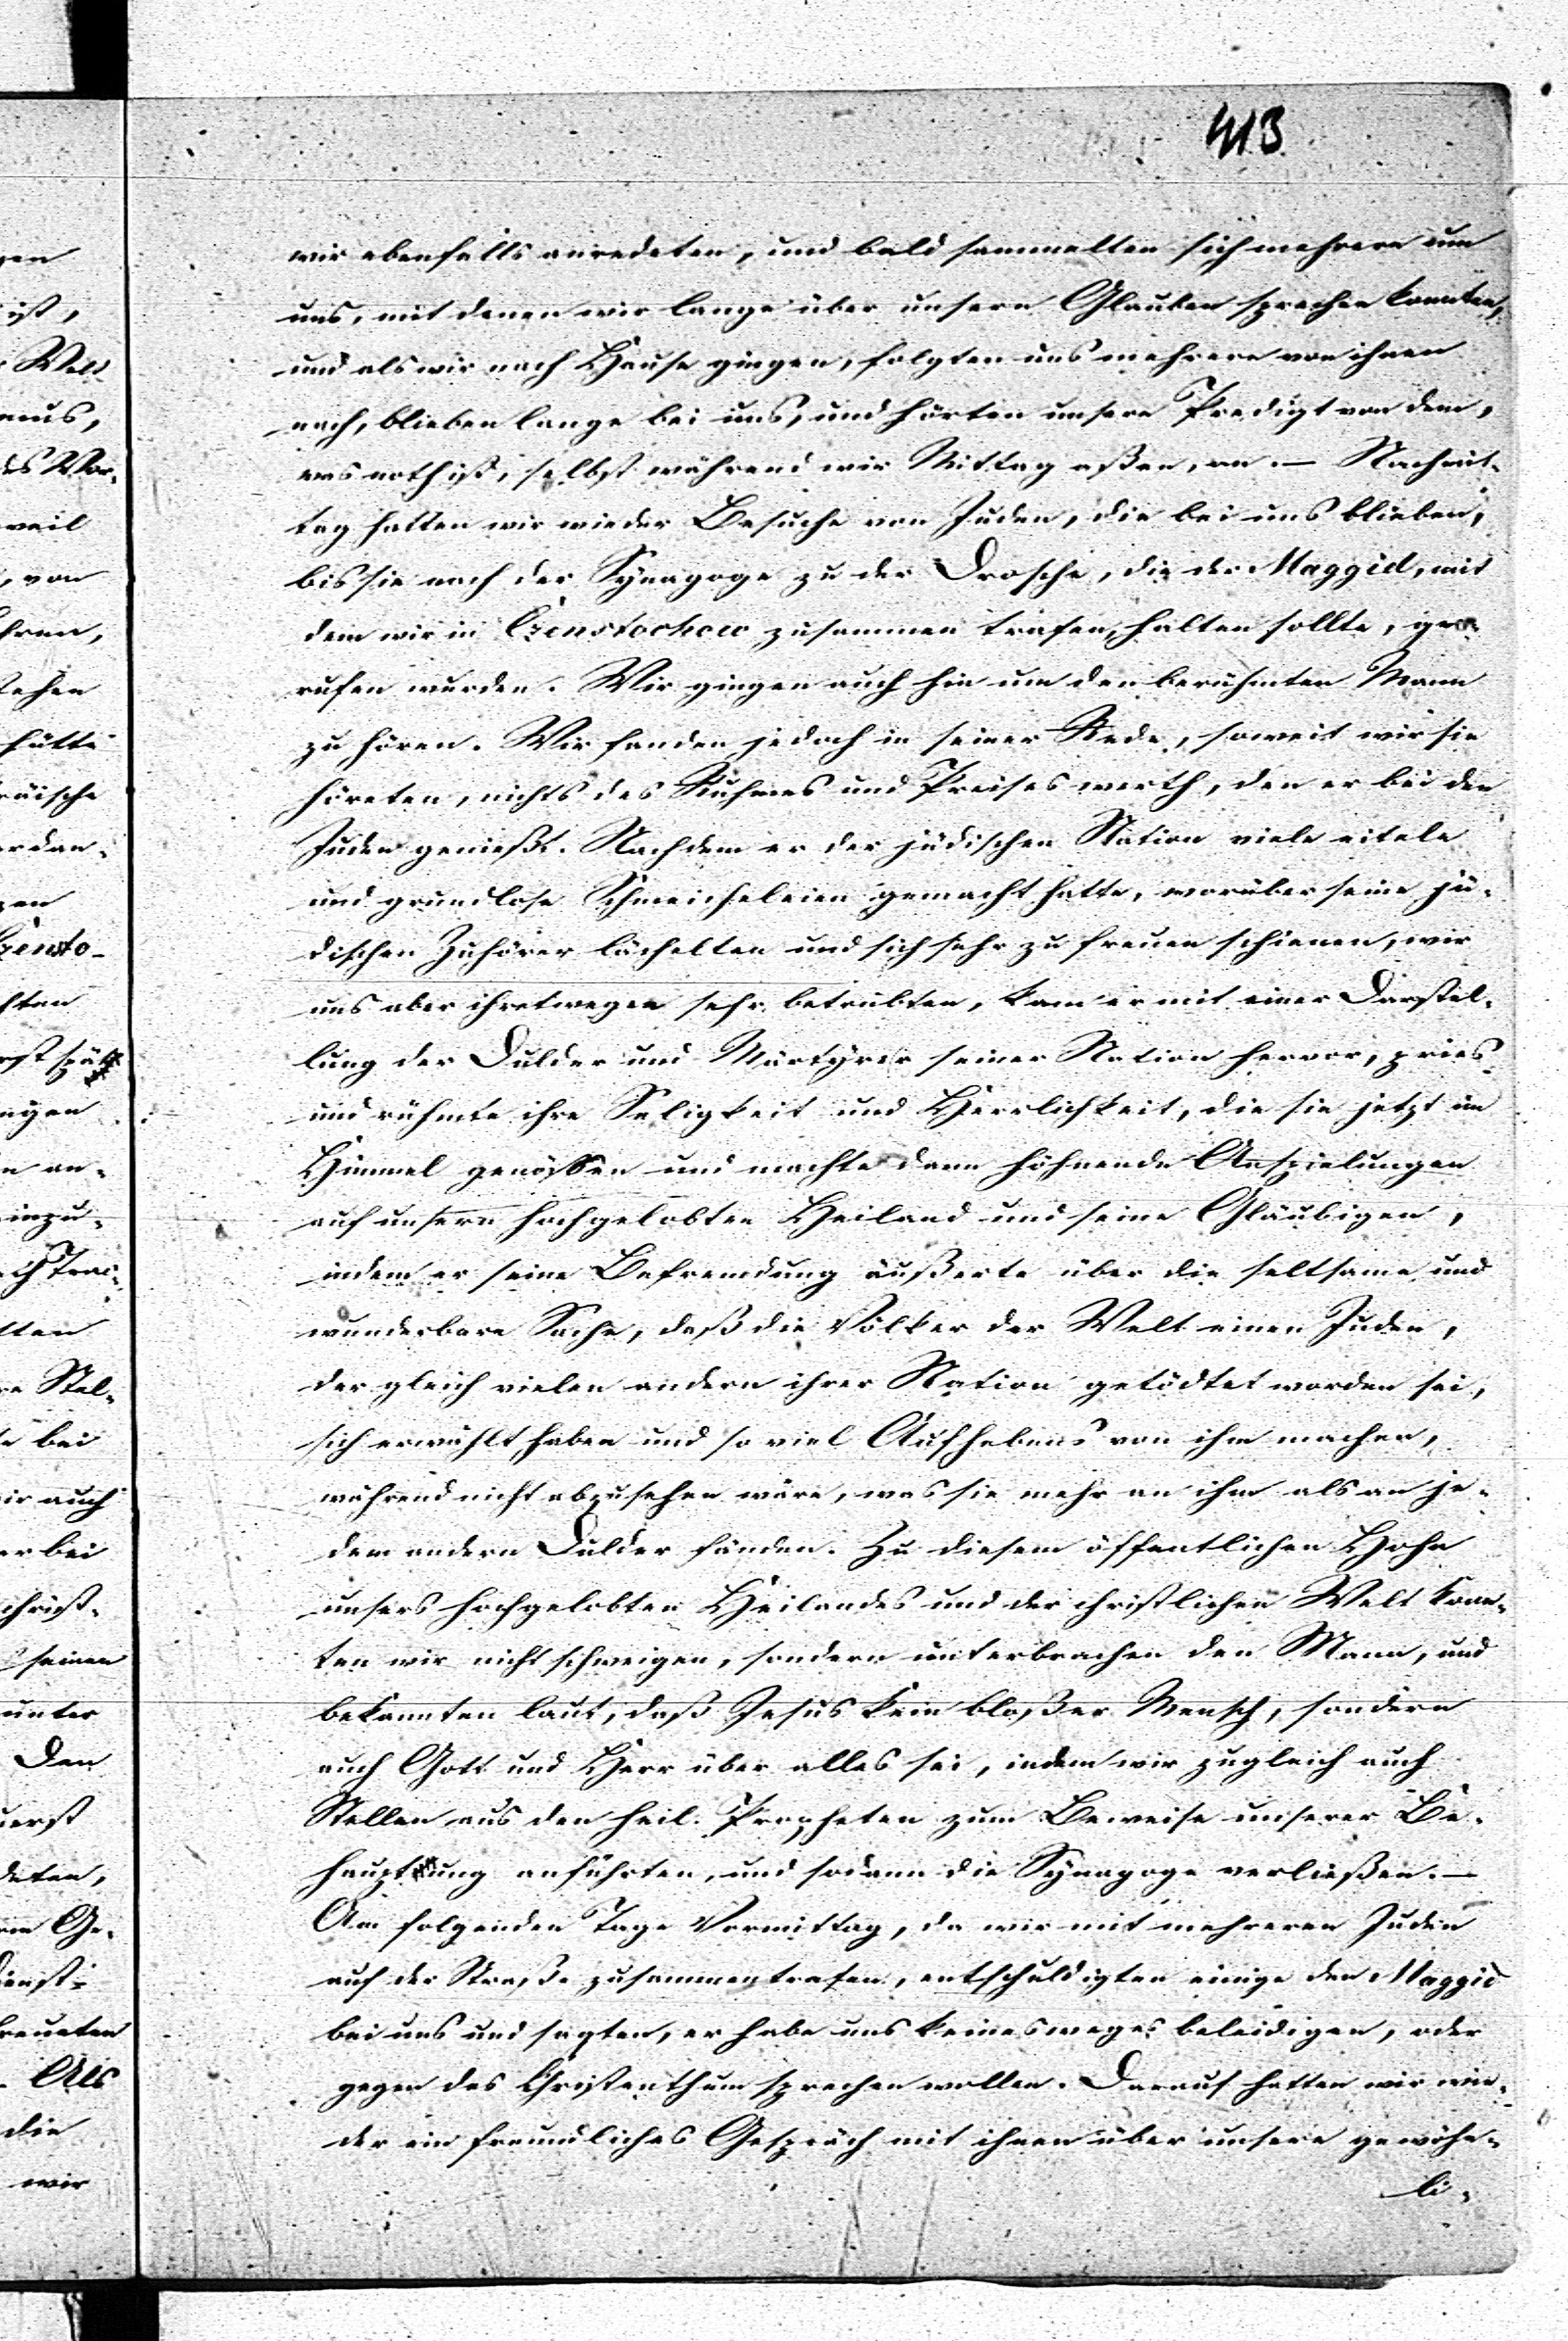 413
wir ebenfalls anredeten, und bald sammelten sich mehrere um
uns, mit denen wir lange über unsern Glauben sprechen konnten,
und als wir nach Hause gingen, folgten uns mehrere von ihnen
nach, blieben lange bei uns, und hörten unsere Predigt von dem,
was noth ist, selbst während wir Mittag aßen, an. – Nachmit-
tag hatten wir wieder Besuche von Juden, die bei uns blieben,
bis sie nach der Synagoge zu der Drosche, die der Maggid, mit
dem wir in Czenstochow zusammen trafen, halten sollte, ge-
rufen wurden. Wir gingen auch hin um den berühmten Mann
zu hören. Wir fanden jedoch in seiner Rede, soweit wir sie
höreten, nichts des Ruhmes und Preises werth, den er bei den
Juden genießt. Nachdem er der jüdischen Nation viele eitele
und grundlose Schmeicheleien gemacht hatte, worüber seine jü-
dischen Zuhörer lächelten und sich sehr zu freuen schienen, wir
uns aber ihretwegen sehr betrübten, kam er mit einer Darstel-
lung der Dulder und Märtyrer seiner Nation hervor, pries
und rühmte ihre Seligkeit und Herrlichkeit, die sie jetzt im
Himmel genössen und machte dann höhnende Anspielungen
auf unsern hochgelobten Heiland und seine Gläubigen,
indem er seine Befremdung äußerte über die seltsame und
wunderbare Sache, daß die Völker der Welt einen Juden,
der gleich vielen andern ihrer Nation getödtet worden sei,
sich erwählt haben und so viel Aufhebens von ihm machen,
während nicht abzusehen wäre, was sie mehr an ihm als an je-
dem andern Dulder fänden. Zu diesem öffentlichen Hohn
unsers hochgelobten Heilandes und der christlichen Welt konn-
ten wir nicht schweigen, sondern unterbrachen den Mann, und
bekannten laut, daß Jesus kein bloßer Mensch, sondern
auch Gott und Herr über alles sei, indem wir zugleich auch
Stellen aus den heil. Propheten zum Beweise unserer Be-
hauptung anführten, und sodann die Synagoge verließen. –
Am folgenden Tage Vormittag, da wir mit mehreren Juden
auf der Straße zusammentrafen, entschuldigten einige den Maggid
bei uns und sagten, er habe uns keineswegs beleidigen, oder
gegen das Christenthum sprechen wollen. Darauf hatten wir wie-
der ein freundliches Gespräch mit ihnen über unsere gewöhn-
li-